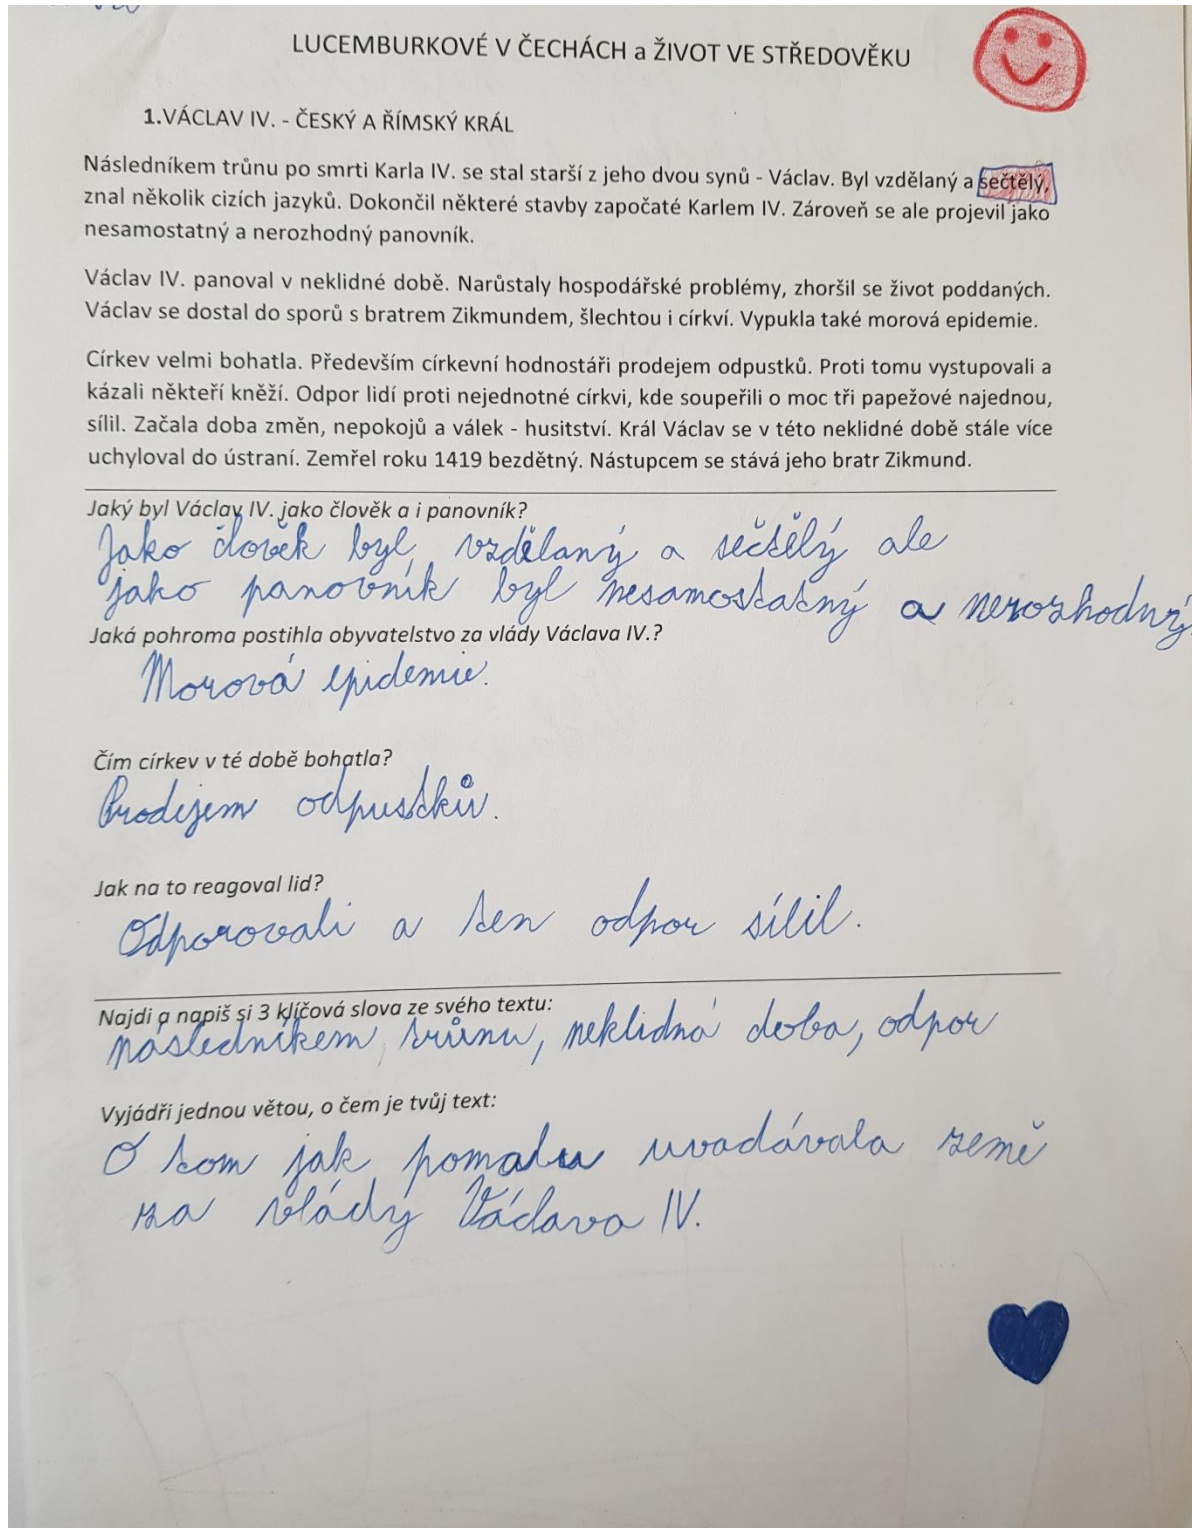 LUCEMBURKOVÉ V ČECHÁCH a ŽIVOT VE STŘEDOVĚKU
1.VÁCLAV IV. - ČESKÝ A ŘÍMSKÝ KRÁL
Následníkem trůnu po smrti Karla IV. se stal starší z jeho dvou synů - Václav. Byl vzdělaný a sečtělý,
znal několik cizích jazyků. Dokončil některé stavby započaté Karlem IV. Zároveň se ale projevil jako
nesamostatný a nerozhodný panovník.
Václav IV. panoval v neklidné době. Narůstaly hospodářské problémy, zhoršil se život poddaných.
Václav se dostal do sporů s bratrem Zikmundem, šlechtou i církví. Vypukla také morová epidemie.
Církev velmi bohatla. Především církevní hodnostáři prodejem odpustků. Proti tomu vystupovali a
kázali někteří kněží. Odpor lidí proti nejednotné církvi, kde soupeřili o moc tři papežové najednou,
sílil. Začala doba změn, nepokojů a válek - husitství. Král Václav se v této neklidné době stále více
uchyloval do ústraní. Zemřel roku 1419 bezdětný. Nástupcem se stává jeho bratr Zikmund.
Jaký byl Václav IV. jako člověk a i panovník?
Jako člověk byl vzdělaný a sečtělý ale
jako panovník byl nesamostatný a nerozhodný.
Jaká pohroma postihla obyvatelstvo za vlády Václava IV.?
Morová epidemie.
Čím církev v té době bohatla?
Prodejem odpustků.
Jak na to reagoval lid?
Odporovali a ten odpor sílil.
Najdi a napiš si 3 klíčová slova ze svého textu:
následníkem trůnu, neklidná doba, odpor
Vyjádři jednou větou, o čem je tvůj text:
O tom jak pomalu uvadávala země
za vlády Václava IV.